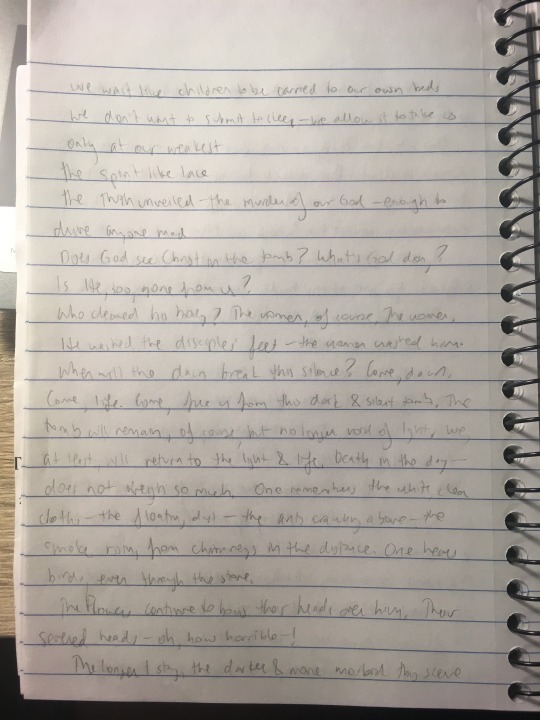 We wait like children to be carried to our own beds
We don't want to submit to sleep – we allow it to take us
only at our weakest
the spirit like lace
the truth unveiled – the murder of our God – enough to
drive anyone mad
Does God see Christ in the tomb? What's God doing?
Is He, too, gone from us?
Who cleaned his body? The women, of course, the women.
He washed the disciples' feet – the women washed him.
When will the dawn break this silence? Come, dawn.
Come, life. Come, free us from this dark & silent tomb. The
tomb will remain, of course, but no longer void of light. We
at least, will return to the light & life. Death in the day –
does not weigh so much. One remembers the white clean
cloths – the floating dust – the ants crawling above – the
smoke rising from chimneys in the distance. One hears
birds, even through the stone.
The flowers continue to bow their heads over him. Their
severed heads – oh, how horrible – !
The longer I stay, the darker & more morbid they seem